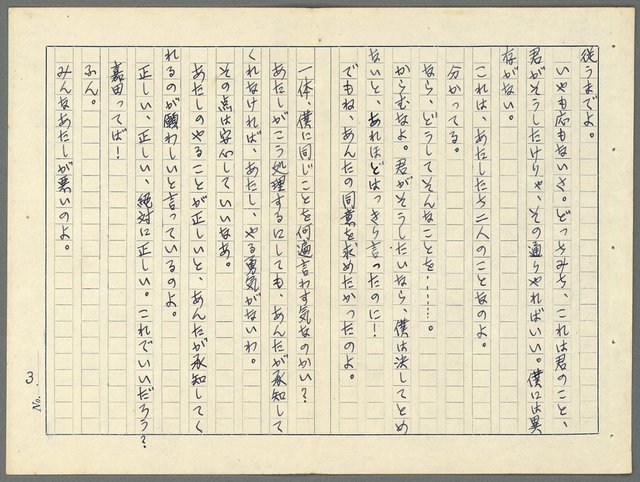 従うまでよ。
いやも応もないさ。どっちみち、これは君のこと、
君がそうしたけりゃ、その通りやればいい。僕には異
存がない。
これは、あたしたち二人のことなのよ。
分かってる。
なら、どうしてそんなことを………。
からむなよ。君がそうしたいなら、僕は決してとめ
ないと、あれほどはっきら言ったのに！
でもね、あんたの同意を求めたかったのよ。
一体、僕に同じことを何遍言わす気なのかい？
あたしがこう処理するにしても、あんたが承知して
くれなければ、あたし、やる勇気がないわ。
その点は安心していいなあ。
あたしのやることが正しいと、あんたが承知してく
れるのが願わしいと言っているのよ。
正しい、正しい、絶対に正しい。これでいいだろう？
嘉田ってば！
ふん。
みんなあたしが悪いのよ。
No. 3